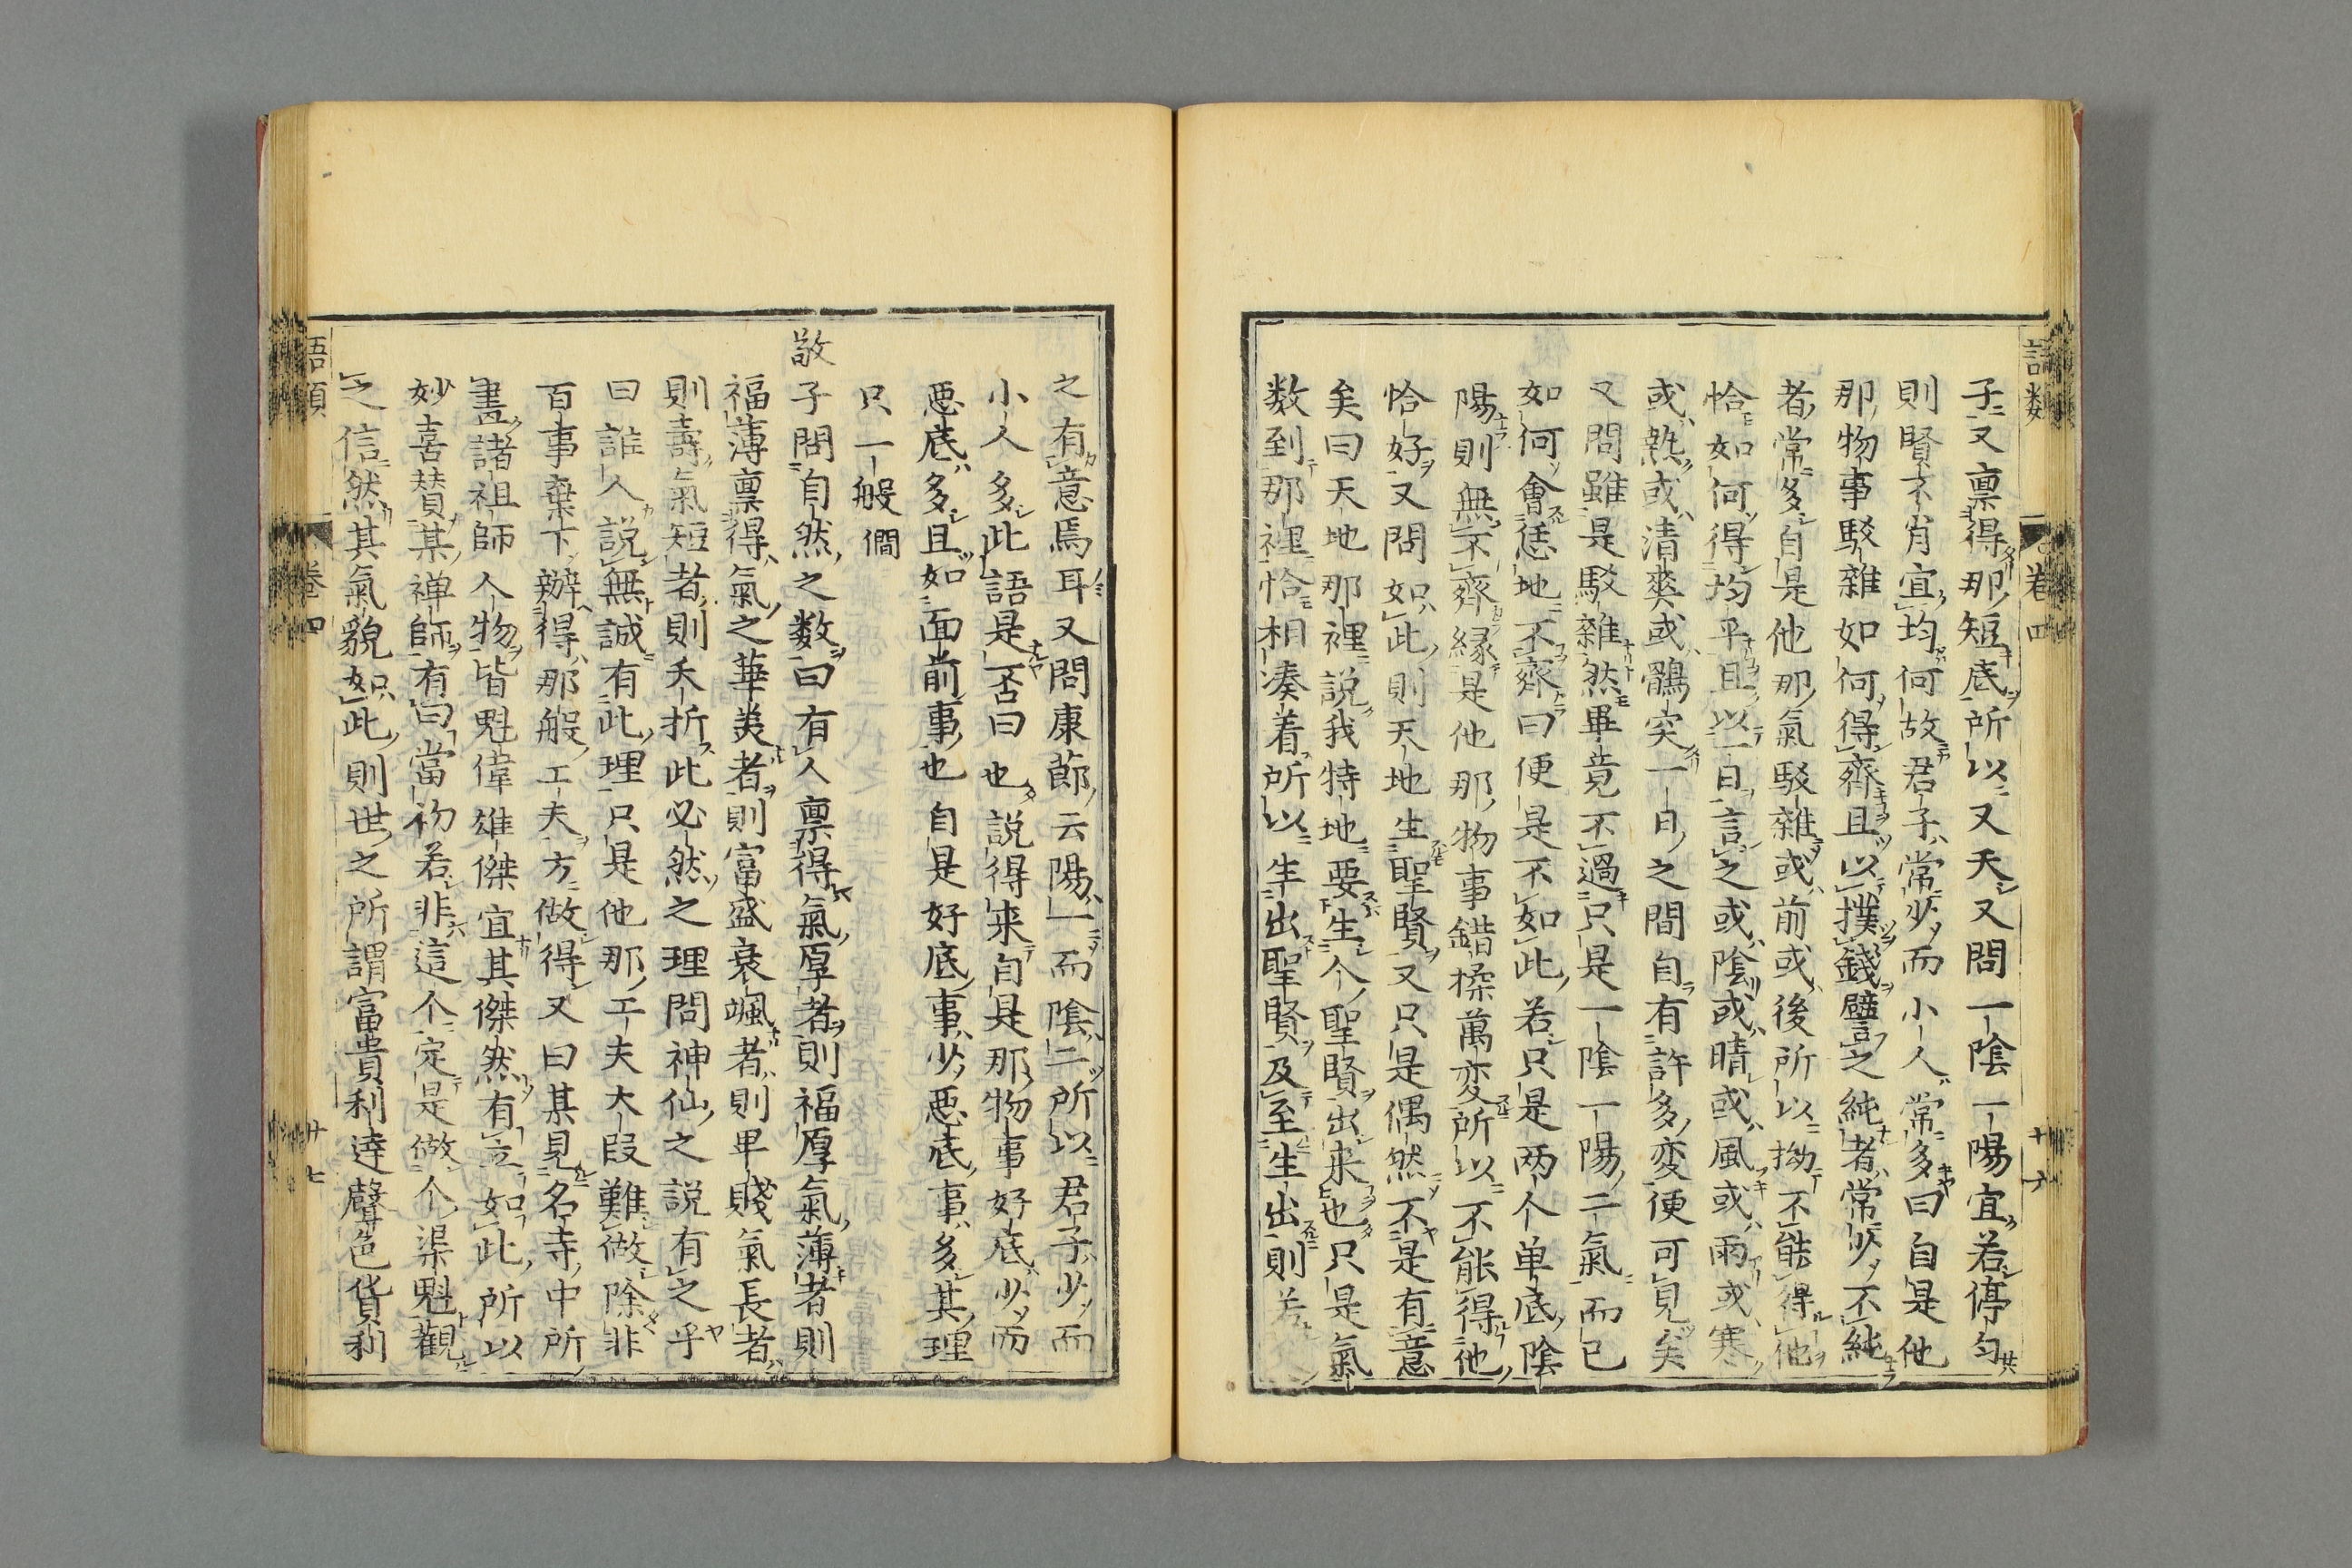 語類 卷四
子又稟得那短底所以又夭又問一陰一陽宜若停勻
則賢不肖宜均何故君子常少而小人常多曰自是他
那物事駁雜如何得齊且以撲錢譬之純者常少不純
者常多自是他那氣駁雜或前或後所以拗不能得他
恰如何得均平且以一日言之或陰或晴或風或雨或寒
或熱或清爽或鶻突一日之間自有許多変便可見矣
又問雖是駁雜然畢竟不過只是一陰一陽二氣而已
如何會恁地不齊曰便是不如此若只是两个单底陰
陽則無不齊縁是他那物事錯揉萬変所以不能得他
恰好又問如此則天地生聖賢又只是偶然不是有意
矣曰天地那裡說我特地要生个聖賢出来也只是氣
数到那裡恰相凑着所以生出聖賢及至生出則若天
之有意焉耳又問康節云陽一而陰二所以君子少而
小人多此語是否曰也說得来自是那物事好底少而
悪底多且如面前事也自是好底事少悪底事多其理
只一般僩
敬子問自然之数曰有人稟得氣厚者則福厚氣薄者則
福薄稟得氣之華美者則富盛衰颯者則卑賤氣長者
則壽氣短者則夭折此必然之理問神仙之說有之乎
曰誰人說無誠有此理只是他那工夫大段難做除非
百事棄下辦得那般工夫方做得又曰某見名寺中所
畫諸祖師人物皆魁偉雄傑宜其傑然有立如此所以
妙喜賛某禅師有曰當初若非這个定是做个渠魁觀
之信然其氣貌如此則世之所謂富貴利達聲色貨利
語類 卷四 廿七